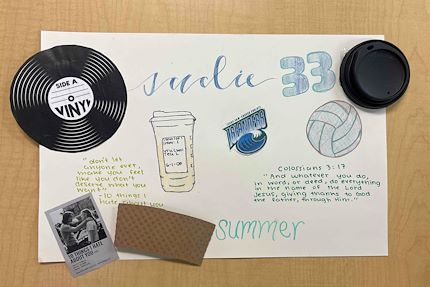 SIDE A
VINYL
sudie 33
"don't let
anyone ever,
make you feel
like you don't
deserve what you
want"
-10 things I
hate about you
10 THINGS I HATE
ABOUT YOU
Colossians 3:17
"And whatever you do,
in word, or deed, do everything
in the name of the Lord
Jesus, giving thanks to God
the Father, through Him."
summer